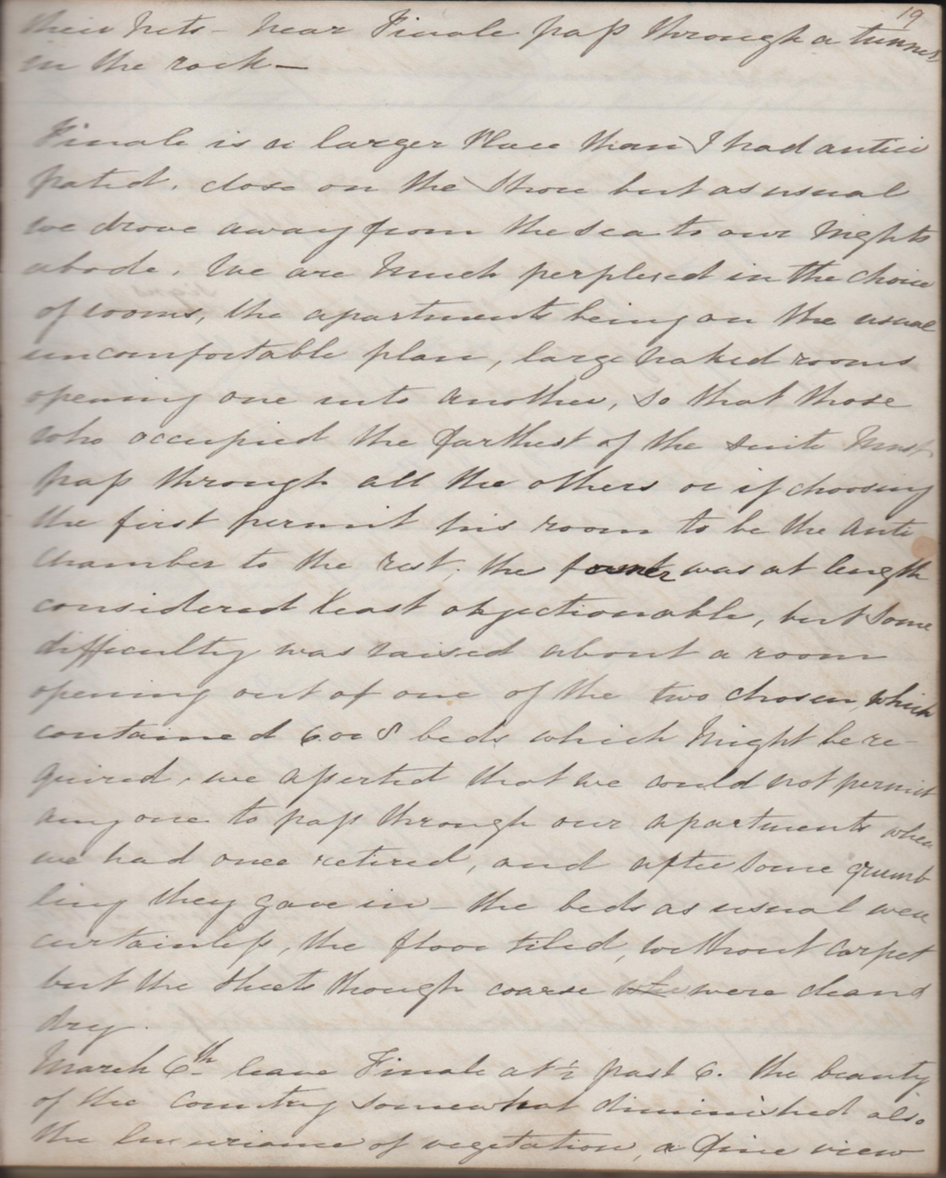 19
their nets - near Finale pass through a tunnel
in the rock -
Finale is a larger Place than I had antici
pated. close on the Shore but as usual
we drove away from the sea to our Nights
abode. We are Much perplexed in the choice
of rooms, the apartments being on the usual
uncomfortable plan, large naked rooms
opening one into another, so that those
who occupied the farthest of the suite Must
pass through all the others or if choosing
the first permit his room to be the anti
chamber to the rest. the former was at length
considered least objectionable, but Some
difficulty was raised about a room
opening out of one of the two chosen which
contained 6 or 8 beds which Might be re-
quired. we asserted that we could not permit
any one to pass through our apartments when
we had once retired, and after Some grumb
ling they gave in - the beds as usual were
curtainless, the floor tiled, without carpet
but the Sheets though coarse were clean &
dry.
March 6th leave Finale at ½ past 6. the beauty
of the Country somewhat diminished also
the luxuriance of vegetation, a fine view